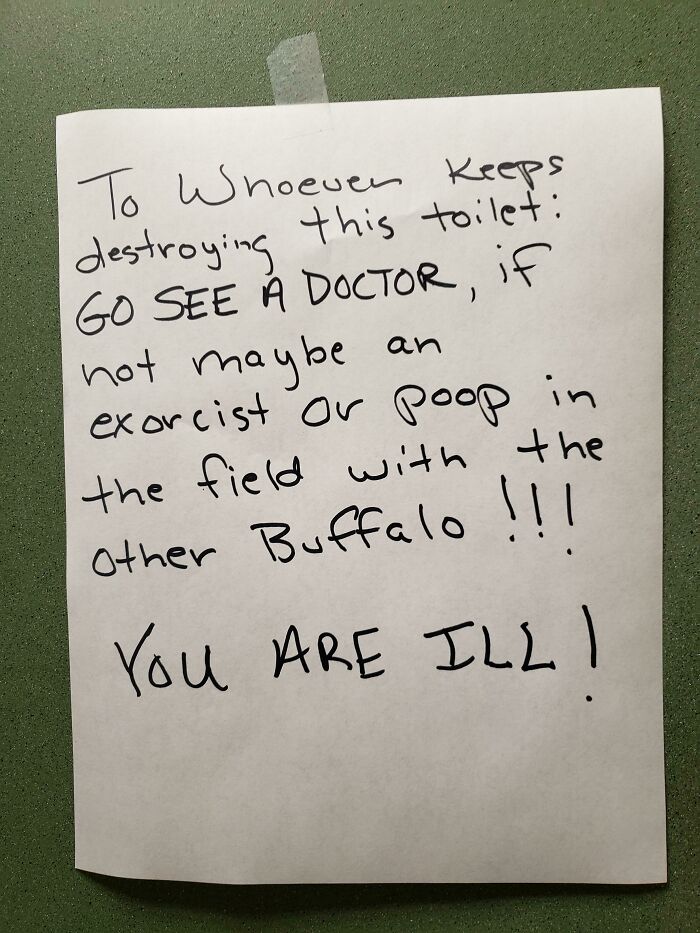 To Whoever Keeps
destroying this toilet:
GO SEE A DOCTOR, if
not maybe an
exorcist or poop in
the field with the
other Buffalo !!!
YOU ARE ILL!